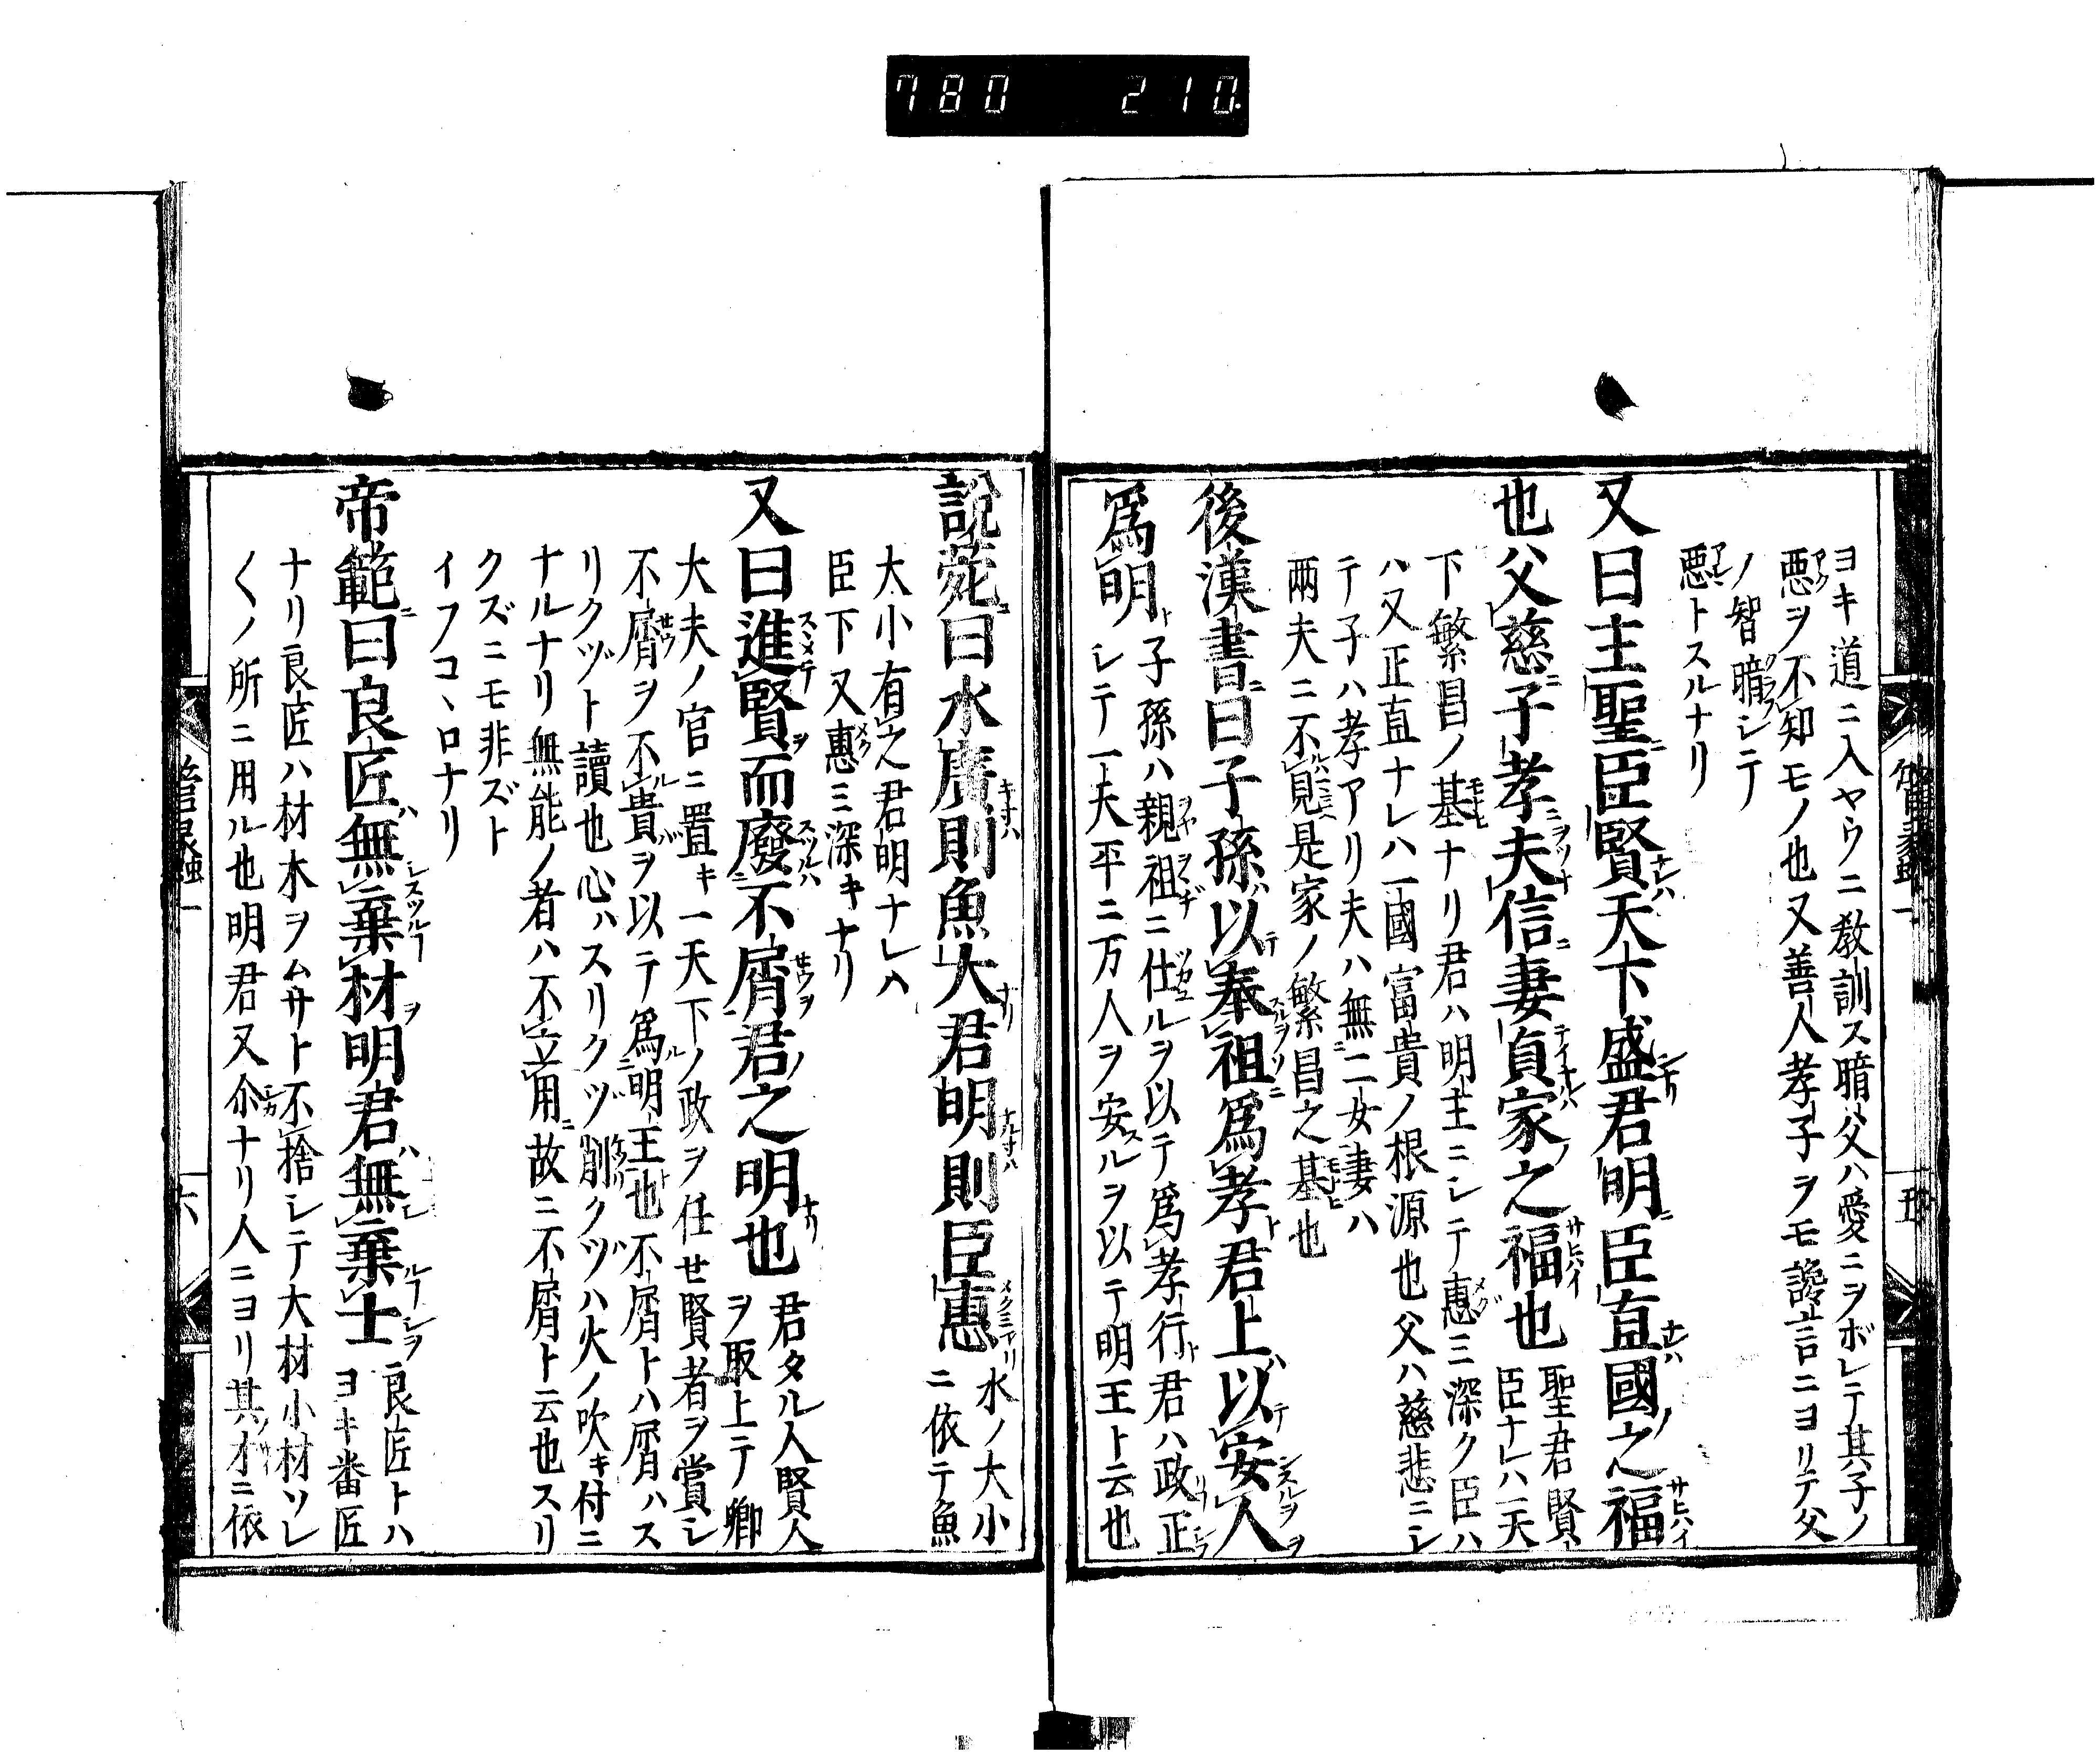 780 210
ヨキ道ニ入ヤウニ教訓ス暗父ハ愛ニヲボレテ其子ノ
悪ヲ不知モノ也又善人孝子ヲモ讒言ニヨリテ父
ノ智職シテ
悪トスルナリ
又曰主聖臣賢天下盛君明臣直國之福
也父慈子孝夫信妻貞家之福也
聖君賢
臣ナレハ一天
下繁昌ノ基ナリ君ハ明主ニシテ惠ミ深ク臣ハ
ハ又正直ナレハ一國富貴ノ根源也父ハ慈悲ニシ
テ子ハ孝アリ夫ハ無二女妻ハ
兩夫ニ不見是家ノ繁昌之基也
後漢書曰子孫以奉祖爲孝君上以安人
爲明
子孫ハ親祖ニ仕ルヲ以テ爲孝行君ハ政正
シテ一天平ニ万人ヲ安ルヲ以テ明王ト云也
五
說苑曰水廣則魚大君明則臣惠
水ノ大小
ニ依テ魚
大小有之君明ナレハ
臣下又惠ミ深キナリ
又曰進賢而廢不屑君之明也
君タル人賢人
ヲ取上テ卿
大夫ノ官ニ置キ一天下ノ政ヲ任せ賢者ヲ賞シ
不屑ヲ不貴ヲ以テ爲明王也不屑トハ屑ハス
リクヅト讀也心ハスリクヅ削クヅハ火ノ吹キ付ニ
ナルナリ無能ノ者ハ不立用故ニ不屑ト云也スリ
クズニモ非ズト
イフコヽロナリ
帝範曰良匠無棄材明君無棄士
良匠トハ
ヨキ番匠
ナリ良匠ハ材木ヲムサト不捨シテ大材小材ソレ
〱ノ所ニ用ル也明君又尒ナリ人ニヨリ其才ニ依
管蠡一
六